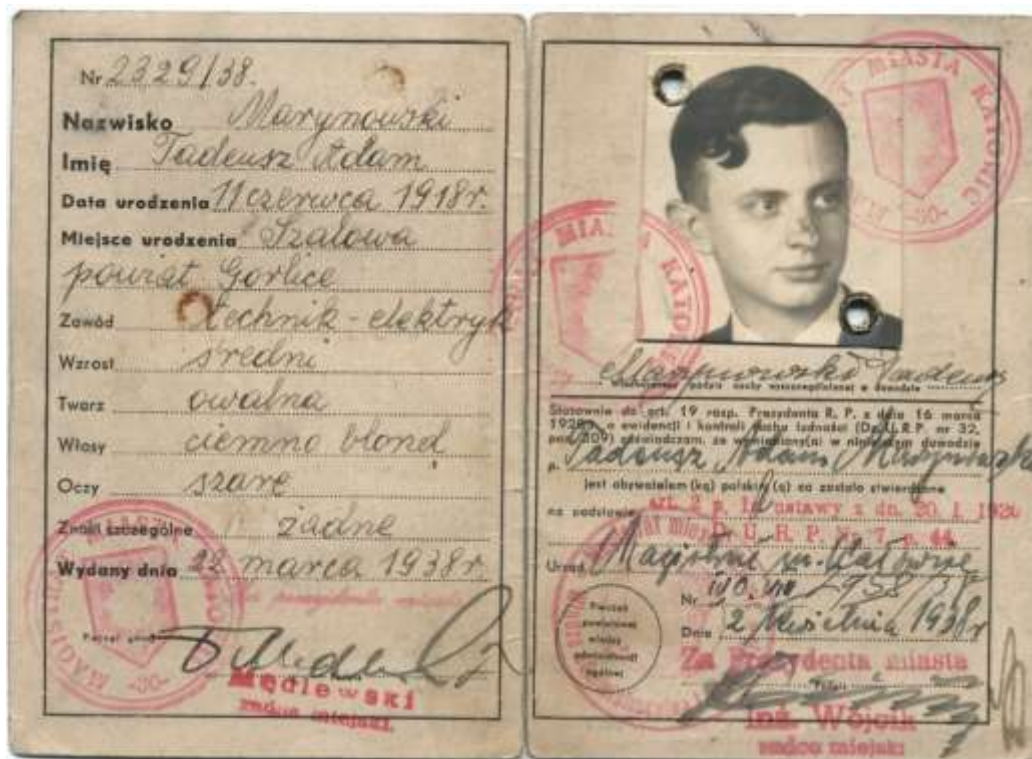 Nr 2329/38.
Nazwisko Marynowski
Imię Tadeusz Adam
Data urodzenia 11 czerwca 1918 r.
Miejsce urodzenia Szalowa
powiat Gorlice
Zawód technik-elektryk
Wzrost średni
Twarz owalna
Włosy ciemno blond
Oczy szare
Znaki szczególne żadne
Wydany dnia 22 marca 1938 r.
Mędlewski
radca miejski.
MIASTA KATOWIC
Marynowski Tadeusz
Stosownie do art. 19 rozp. Prezydenta R. P. z dnia 16 marca
1928 r. o ewidencji i kontroli ruchu ludności (Dz. U. R. P. nr 32,
poz. 309) poświadczam, że wymieniony(a) w niniejszym dowodzie
p. Tadeusz Adam Marynowski
jest obywatelem (ką) polskim (ą) co zostało stwierdzone
na podstawie art. 2 p. ustawy z dn. 20. I. 1920
D. U. R. P. Nr. 7 p. 44
Urząd Magistrat m. Katowic
Nr
Dnia 2 kwietnia 1938 r
Pieczęć
powiatowej
władzy
administracji
ogólnej
Za Prezydenta miasta
Podpis
Inż. Wójcik
radca miejski